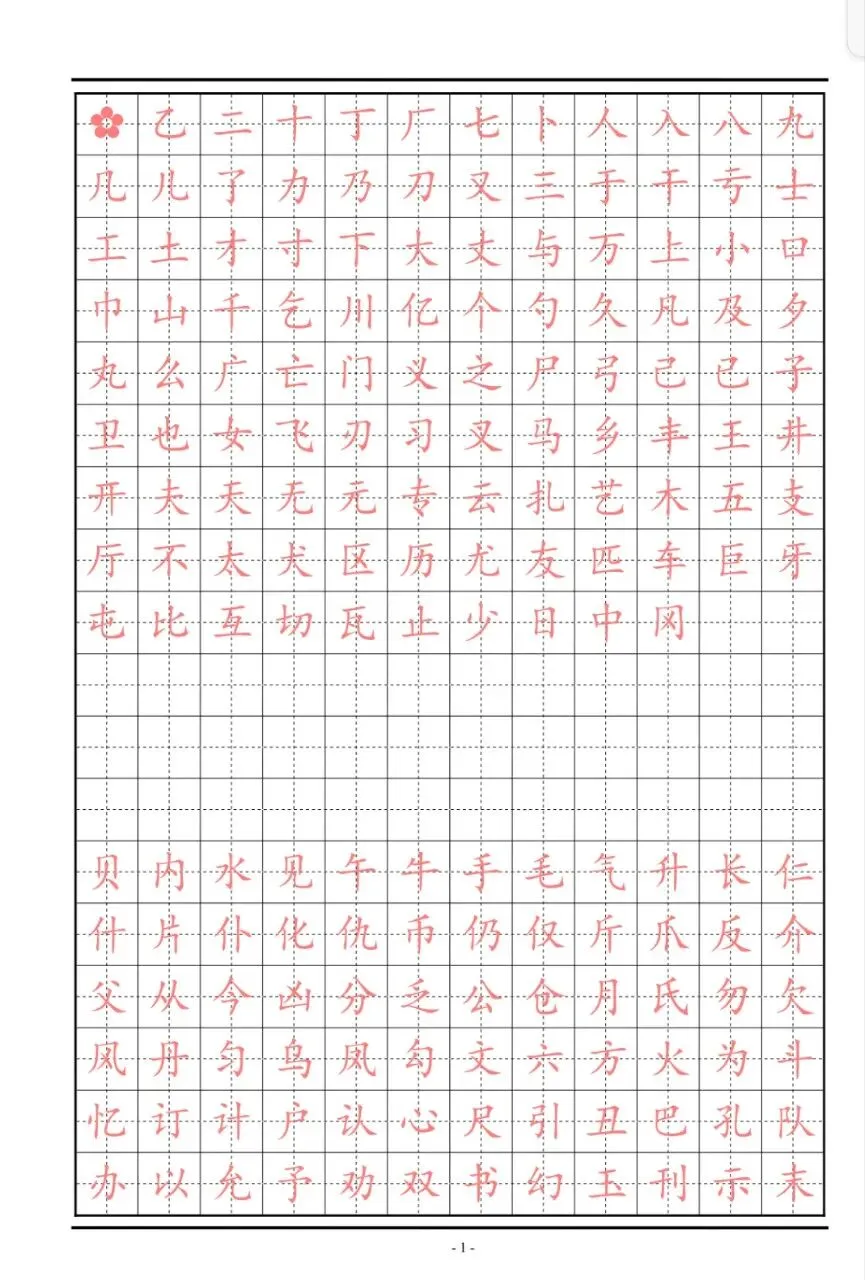 乙 二 十 丁 厂 七 卜 人 入 八 九
几 儿 了 力 乃 刀 又 三 于 干 亏 士
工 土 才 寸 下 大 丈 与 万 上 小 口
巾 山 千 乞 川 亿 个 勺 久 凡 及 夕
丸 么 广 亡 门 义 之 尸 弓 己 已 子
卫 也 女 飞 刃 习 叉 马 乡 丰 王 井
开 夫 天 无 元 专 云 扎 艺 木 五 支
厅 不 太 犬 区 历 尤 友 匹 车 巨 牙
屯 比 互 切 瓦 止 少 日 中 冈
贝 内 水 见 午 牛 手 毛 气 升 长 仁
什 片 仆 化 仇 币 仍 仅 斤 爪 反 介
父 从 今 凶 分 乏 公 仓 月 氏 勿 欠
风 丹 匀 乌 凤 勾 文 六 方 火 为 斗
忆 订 计 户 认 心 尺 引 丑 巴 孔 队
办 以 允 予 劝 双 书 幻 玉 刊 示 末
- 1 -